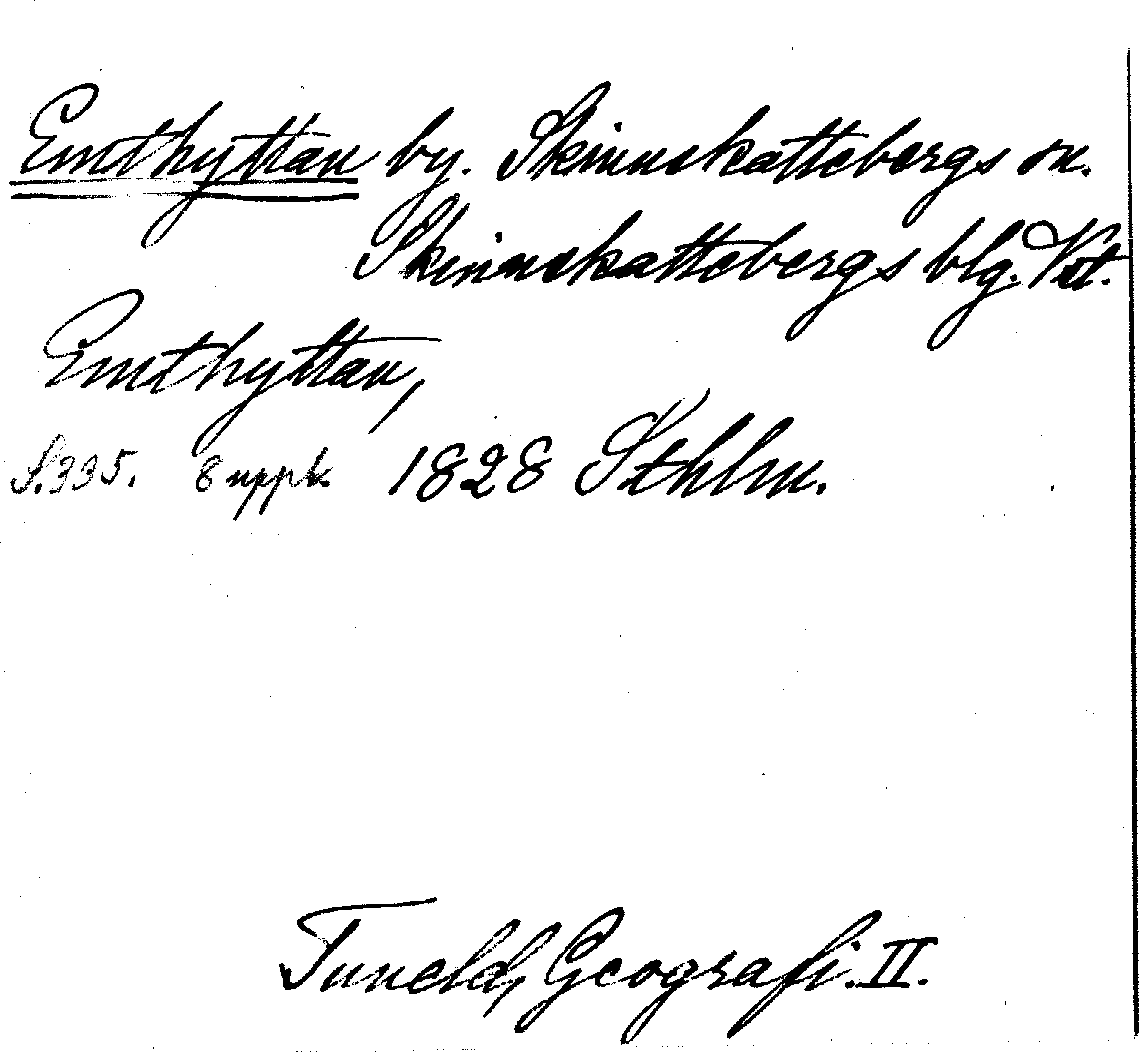 Emthyttan by. Skinnskattebergs sn.
Skinnskattebergs blg. Vst.
Emthyttan,
S.335. 8 uppl. 1828 Sthlm.
Tuneld, Geografi. II.